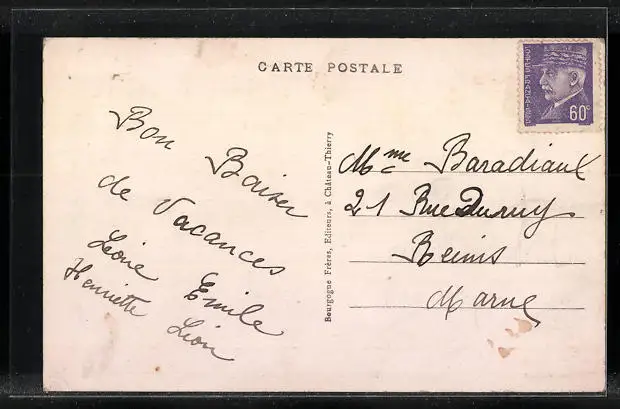 CARTE POSTALE
60c
Bon Baiser
de Vacances
Léone Emile
Henriette Léon
Bourgogne Frères, Editeurs, à Château-Thierry
Mme Baradiaux
21 Rue Duruy
Reims
Marne